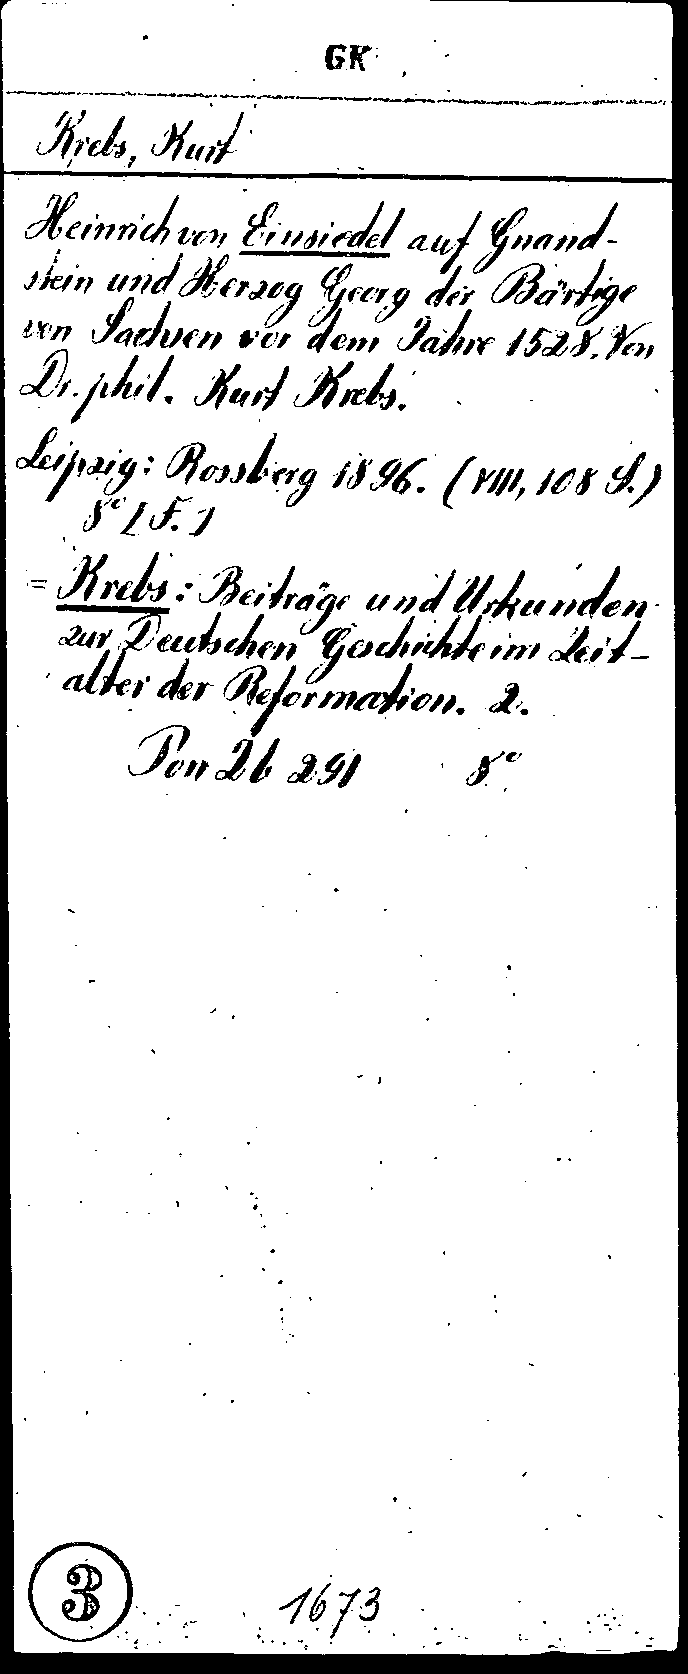 GK
Krebs, Kurt
Heinrich von Einsiedel auf Gnand-
stein und Herzog Georg der Bärtige
von Sachsen vor dem Jahre 1528. Von
Dr. phil. Kurt Krebs.
Leipzig: Rossberg 1896. (VIII, 108 S.)
8° [F.]
= Krebs: Beiträge und Urkunden
zur Deutschen Geschichte im Zeit-
alter der Reformation. 2.
Pon 2b 291 8°
3
1673